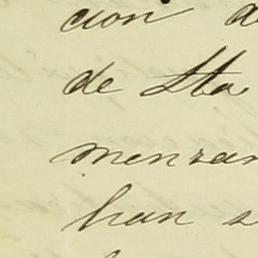 cion d
de Sta
menzaro
han s